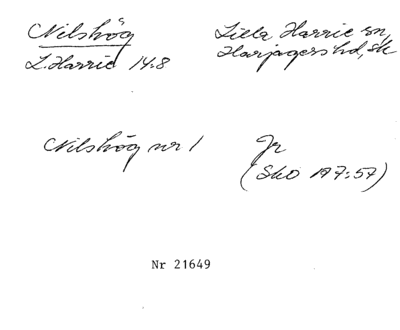 Nilshög
L. Harrie 14:8
Lilla Harrie sn,
Harjagers hd, sk
Nilshög nr 1
Jr
(SkO 197:57)
Nr 21649